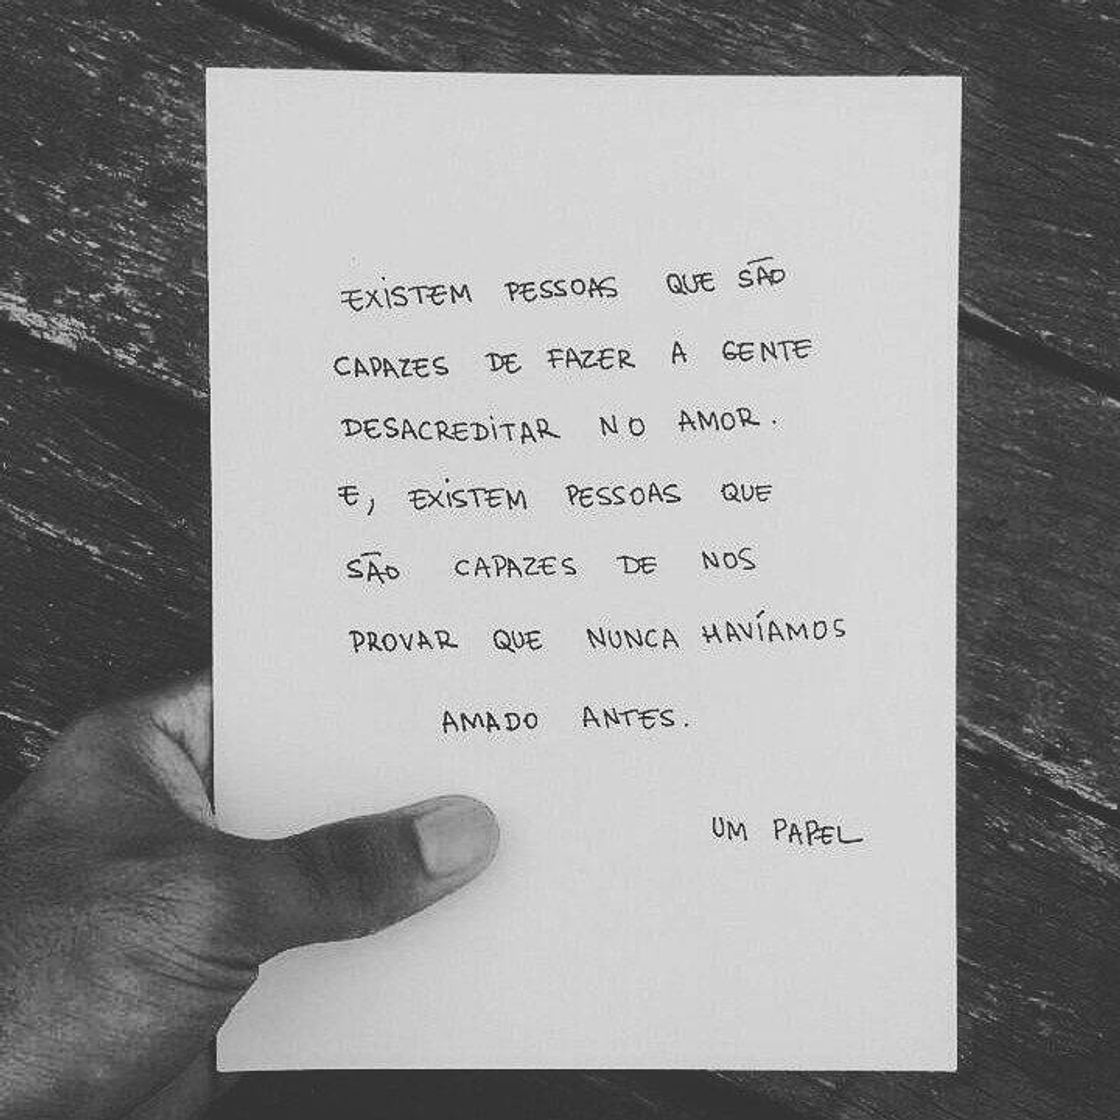 EXISTEM PESSOAS QUE SÃO
CAPAZES DE FAZER A GENTE
DESACREDITAR NO AMOR.
E, EXISTEM PESSOAS QUE
SÃO CAPAZES DE NOS
PROVAR QUE NUNCA HAVÍAMOS
AMADO ANTES.
UM PAPEL